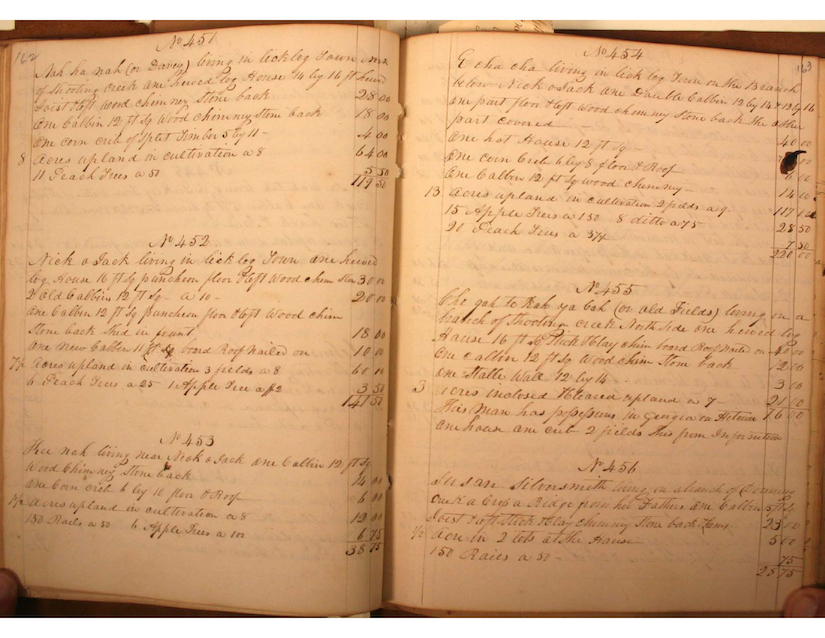 162
No 451
Nah ha nah (or Davey) living in lick log Town
of Shooting creek one hewed log House 14 by 16 ft
Joist & loft wood chimney Stone back 28 00
One Cabbin 12 ft Sq Wood chimney Stone back 18 00
One corn crib of Split Timber 5 by 11 - 4 00
8 Acres upland in cultivation a 8 64 00
11 Peach Trees a 50 5 50
119 50
No 452
Nick o Jack living in lick log Town one hewed
log House 16 ft Sq puncheon floor & loft Wood chim Stone 30 00
2 Old Cabbins 12 ft Sq - a 10 - 20 00
One Cabbin 12 ft Sq puncheon floor & loft Wood chim
Stone back Shed in front 18 00
One New Cabbin 11 ft Sq board Roof Nailed on 10 00
7½ Acres upland in cultivation 3 fields a 8 60 00
6 Peach Trees a 25 1 Apple Tree a $2 3 50
141 50
No 453
nah living near Nick o Jack one Cabbin 12 ft Sq
Wood Chimney Stone back
One Corn crib 6 by 10 floor & Roof 6 00
1½ Acres upland in cultivation a 8 12 00
150 Rails a 50 6 Apple Trees a 100 6 75
38 75
163
No 454
Echa cha living in lick log Town on the Branch
below Nick o Jack one Double Cabbin 12 by 14 & 13 by 16
one part floor & loft Wood chimney Stone back the other
part covered 40 00
One hot House 12 ft Sq -
One corn Crib 6 by 8 floor & Roof 00
One Cabbin 12 ft Sq wood chimney - 14 00
13 Acres upland in cultivation 2 fields a 9 - 117 00
15 Apple Trees a 150 8 ditto a 75 28 50
21 Peach Trees a 37½ 7 50
220 00
No 455
Che gah to (or old Fields) living on a
branch of Shooting creek North Side one hewed log
House 16 ft Sq Stick & Clay chim board Roof Nailed on 40 00
One Cabbin 12 ft Sq Wood chim Stone back 12 00
One Stable Wall 12 by 14 3 00
3 Acres inclosed & Cleared upland a 7 - 21 00
76 00
This Man has possessions in Georgia on
one house one crib 2 fields this from Information
No 456
Susan Silversmith living on a branch of
creek a Cross a Ridge from her Fathers one Cabbin
Joist & loft Stick & Clay chimney Stone back 23 00
½ Acre in 2 lots at the House 5 00
150 Railes a 50 - 75
28 75